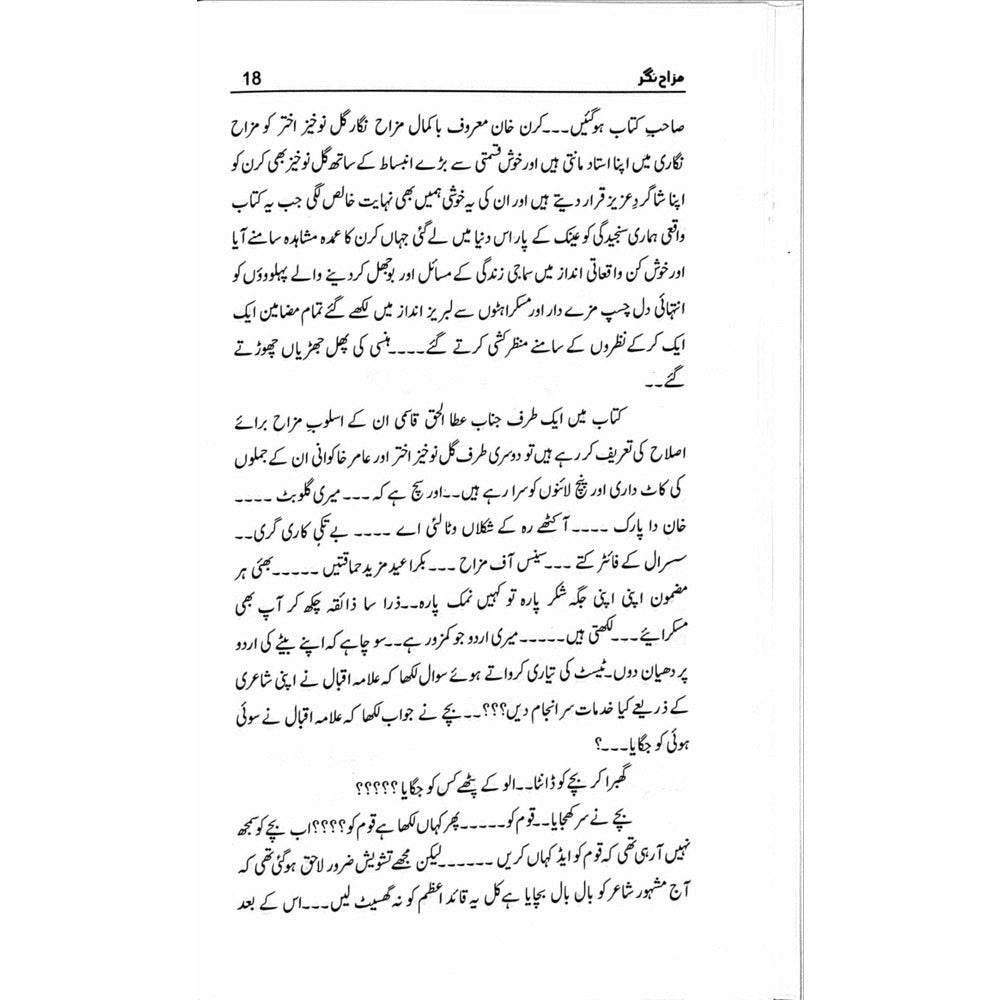 مزاح نگر
18
صاحبِ کتاب ہوگئیں۔۔۔کرن خان معروف باکمال مزاح نگار گل نوخیز اختر کو مزاح
نگاری میں اپنا استاد مانتی ہیں اور خوش قسمتی سے بڑے انبساط کے ساتھ گل نوخیز بھی کرن کو
اپنا شاگردِ عزیز قرار دیتے ہیں اور ان کی یہ خوشی ہمیں بھی نہایت خالص لگی جب یہ کتاب
واقعی ہماری سنجیدگی کو عینک کے پار اس دنیا میں لے گئی جہاں کرن کا عمدہ مشاہدہ سامنے آیا
اور خوش کن واقعاتی انداز میں سماجی زندگی کے مسائل اور بوجھل کر دینے والے پہلووؤں کو
انتہائی دل چسپ مزے دار اور مسکراہٹوں سے لبریز انداز میں لکھے گئے تمام مضامین ایک
ایک کر کے نظروں کے سامنے منظر کشی کرتے گئے۔۔۔۔ہنسی کی پھل جھڑیاں چھوڑتے
گئے۔۔
کتاب میں ایک طرف جناب عطا الحق قاسمی ان کے اسلوبِ مزاح برائے
اصلاح کی تعریف کر رہے ہیں تو دوسری طرف گل نوخیز اختر اور عامر خاکوانی ان کے جملوں
کی کاٹ داری اور پنچ لائنوں کو سرا رہے ہیں۔۔اور سچ ہے کہ۔۔۔ میری گلوبٹ ۔۔۔۔
خان دا پارک ۔۔۔۔ آ کٹھے رہ کے شکلاں وٹا لئی اے ۔۔۔۔ بے تکی کاری گری۔۔
سسرال کے فائٹر کتے ۔۔۔سینس آف مزاح ۔۔۔بکرا عید مزید حماقتیں ۔۔۔۔۔بھئی ہر
مضمون اپنی اپنی جگہ شکر پارہ تو کہیں نمک پارہ۔۔ذرا سا ذائقہ چکھ کر آپ بھی
مسکرائیے۔۔۔لکھتی ہیں۔۔۔۔۔میری اردو جو کمزور ہے۔۔سو چاہے کہ اپنے بیٹے کی اردو
پر دھیان دوں۔ٹیسٹ کی تیاری کرواتے ہوئے سوال لکھا کہ علامہ اقبال نے اپنی شاعری
کے ذریعے کیا خدمات سر انجام دیں؟؟؟۔۔بچے نے جواب لکھا کہ علامہ اقبال نے سوئی
ہوئی کو جگایا۔۔۔؟
گھبرا کر بچے کو ڈانٹا۔۔الو کے پٹھے کس کو جگایا ؟؟؟؟؟
بچے نے سر کھجایا۔۔قوم کو۔۔۔۔۔پھر کہاں لکھا ہے قوم کو؟؟؟؟اب بچے کو سمجھ
نہیں آ رہی تھی کہ قوم کو ایڈ کہاں کریں ۔۔۔۔۔۔لیکن مجھے تشویش ضرور لاحق ہو گئی تھی کہ
آج مشہور شاعر کو بال بال بچایا ہے کل یہ قائد اعظم کو نہ گھسیٹ لیں۔۔۔اس کے بعد